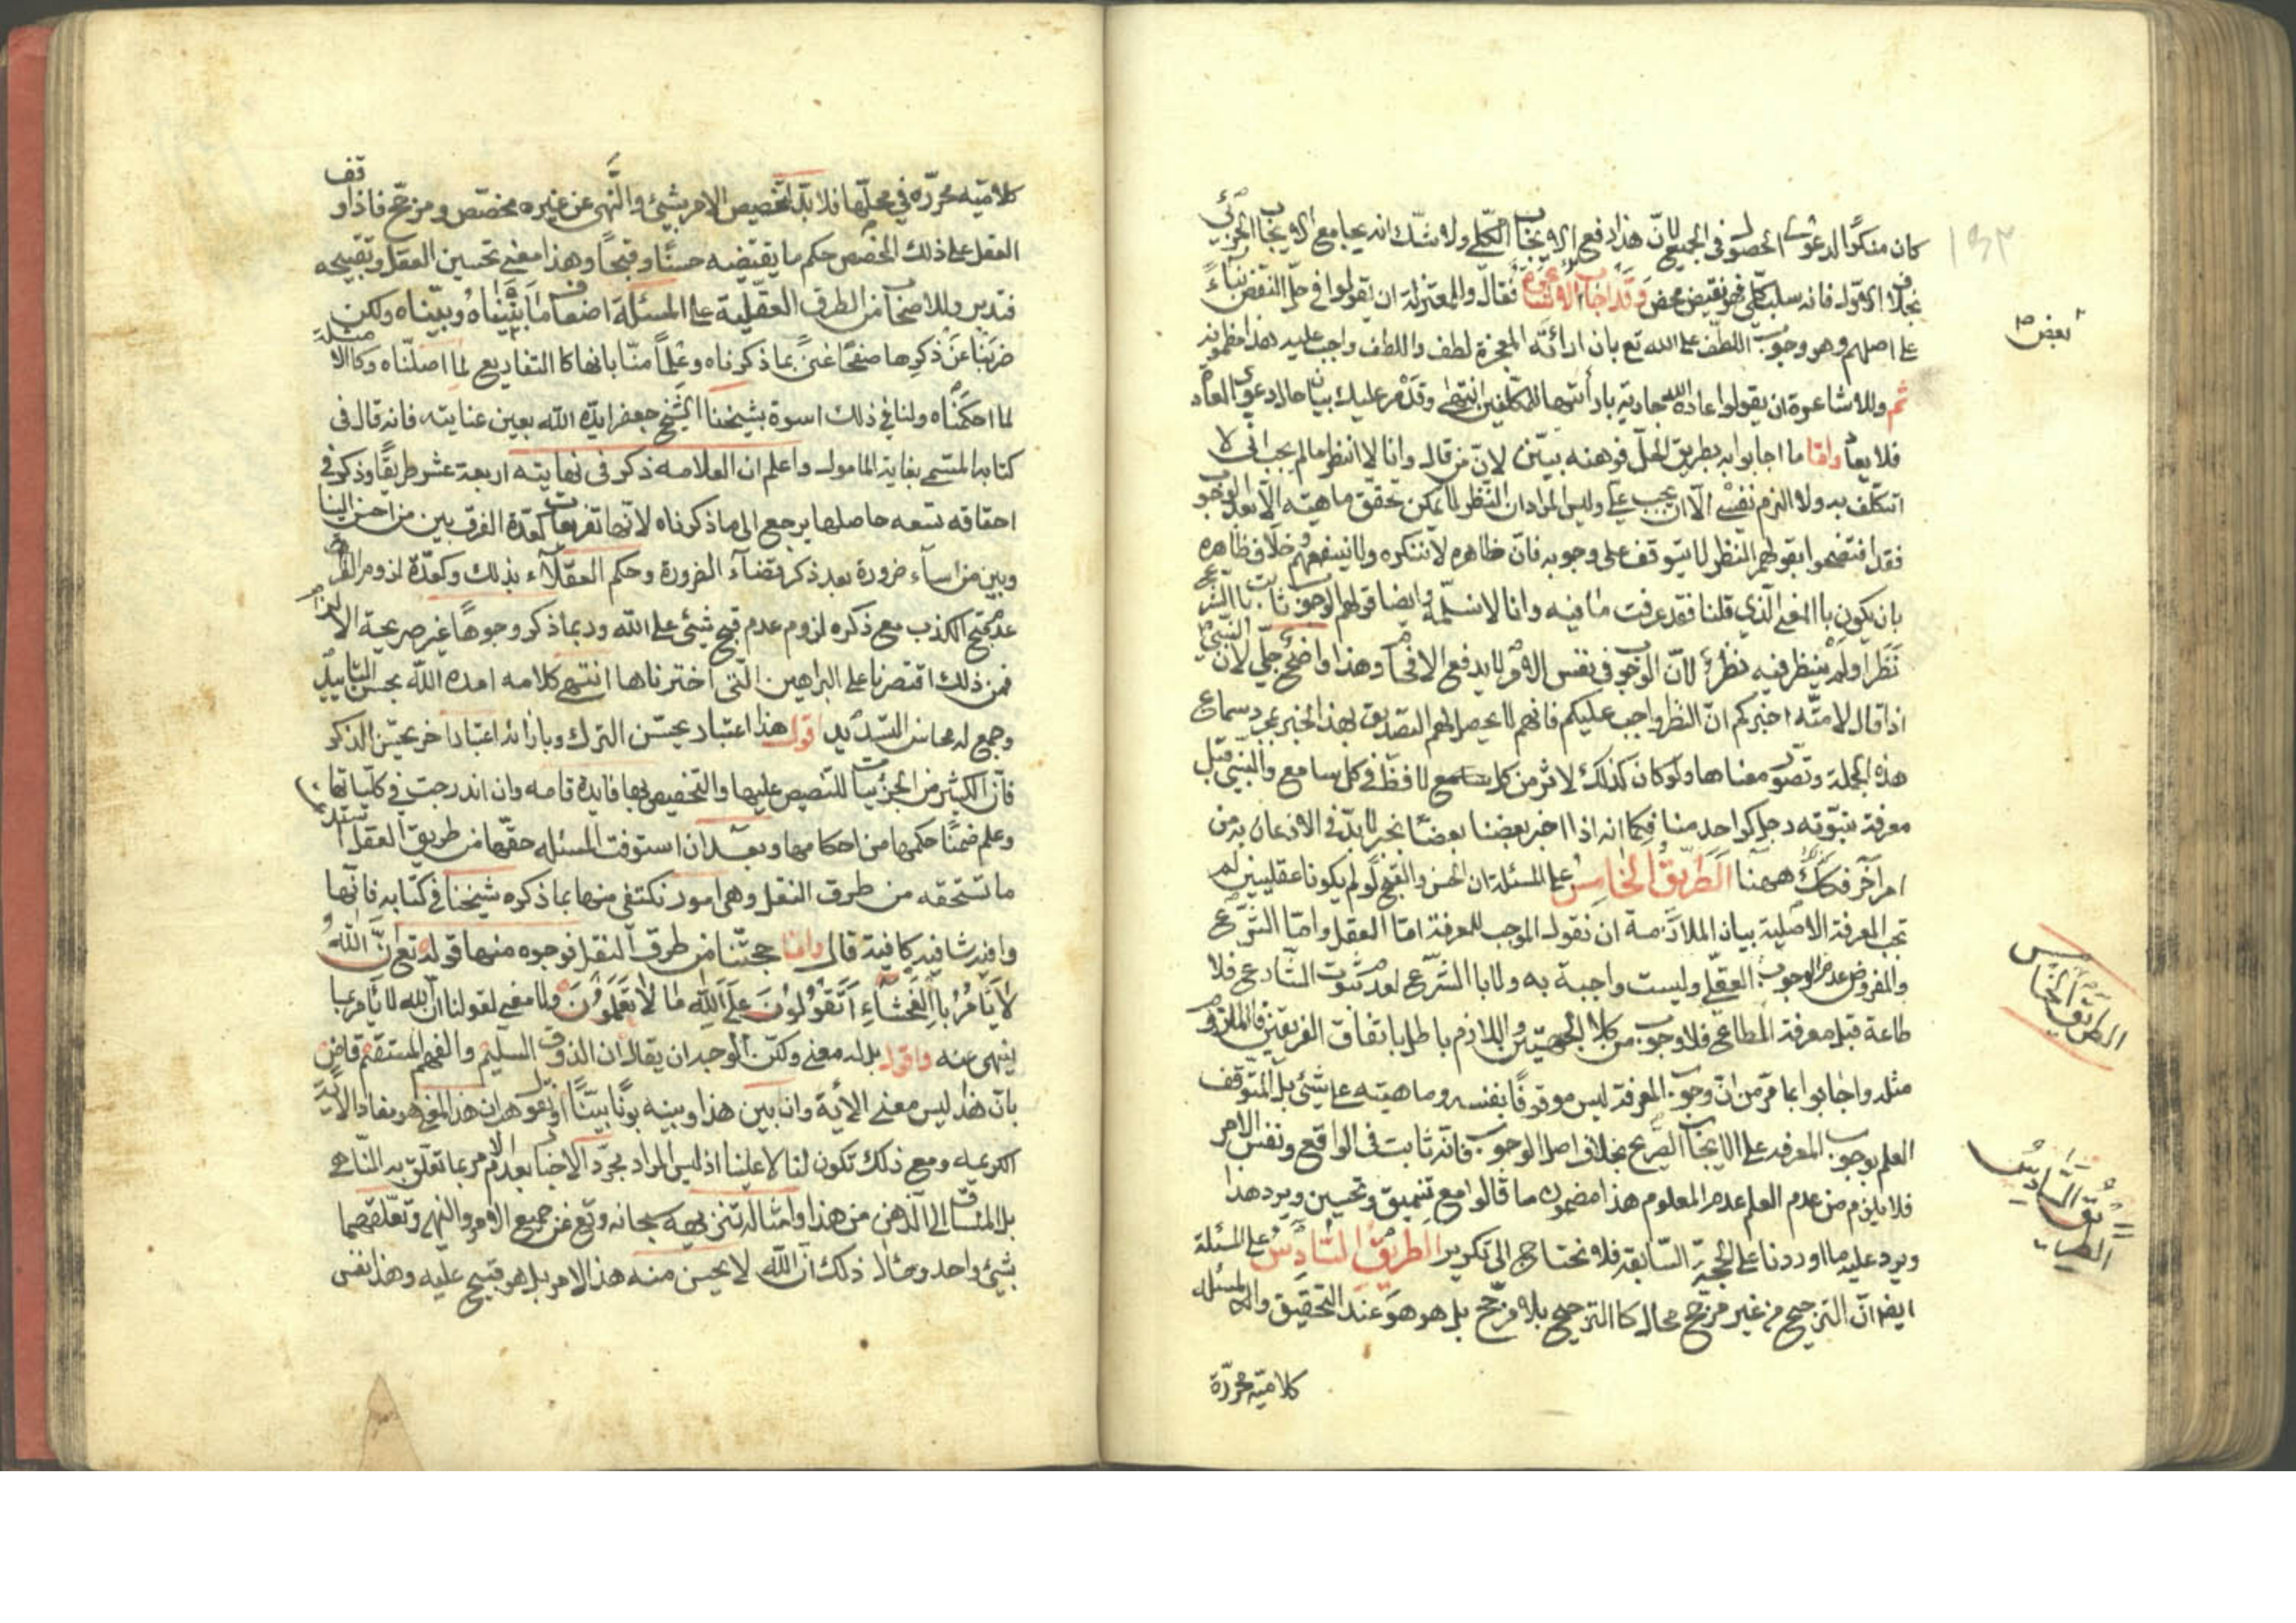 كان منكرًا لدعوى الحصول في الجميع لانّ هذا رفع الايجاب الكلّي ولا شكّ انه يجامع الايجاب الجزئي
بخلاف الاول فانه سلب كلّي فهو نقيض محض وقد اجاب الاشاعرة فقال وللمعتزلة ان يقولوا في حلّ النقض بناءً
على اصلهم وهو وجوب اللطف على الله تع بان ارائة المعجزة لطف واللطف واجب عليه هذا مظمونه
ثم وللاشاعرة ان يقولوا عادة الله جارية بارائتها للمكلّفين انتهى وقد مر عليك بيان حال دعوى العادة
فلا يعاد واما ما اجابوا به بطريق الحلّ فوهنه بيّن لان من قال وانا لا انظر ما لم يجب اني لا
اتكلّف به ولا الزم نفسي الّا ان يجب عليّ وليس المراد ان النظر لا يمكن تحقّق ماهيته الّا بعد الوجوب
فقد افتضحوا بقولهم النظر لا يتوقف على وجوبه فانّ ظاهره لا ننكره ولا ينفعهم وخلاف ظاهره
بان يكون باالمعنى الّذي قلنا فقد عرفت ما فيه وانا لا نسلّمه وايضا قولهم الوجوب ثابت باالشرع
نظر او لم ينظر فيه نظرٌ لانّ الوجوب في نفس الامر لا يدفع الافحام وهذا واضح جليّ لانّ النبيّ
اذا قال لامته اخبركم انّ النظر واجب عليكم فانهم لا يحصل لهم التصديق بهذا الخبر بمجرد سماع
هذه الجملة وتصوّر معناها ولو كان كذلك لاثر من كل لافظ في كل سامع والنبي قبل
معرفة نبوّته رجل كواحد منا فكما انه اذا اخبر بعضنا بعضًا بخبر لا بدّ في الاذعان به من
امر آخر فكذلك ههنا الطريق الخامس على المسئلة ان الحسن والقبح لو لم يكونا عقليين لم
تجب المعرفة الاصلية بيان الملازمة ان نقول الموجب للمعرفة امّا العقل وامّا الشرع
والمفروض عدم الوجوب العقلي وليست واجبة به ولا باالشرع لعدم ثبوت الشارع فلا
طاعة قبل معرفة المطاع فلا وجوب من كلا الجهتين واللازم باطل باتفاق الفريقين فالملزوم
مثله واجابوا بما مرّ من انّ وجوب المعرفة ليس موقوفًا بنفسه وماهيته على شيئ بل المتوقف
العلم بوجوب المعرفه على الايجاب الصريح بخلاف اصل الوجوب فانّه ثابت في الواقع ونفس الامر
فلا يلزم من عدم العلم عدم المعلوم هذا مضمون ما قالوا مع تنميق وتحسين ويرد هذا
ويرد عليه ما اوردنا على الحجة السّابقه فلا نحتاج الى تكرير الطريق السادس على المسئلة
ايضا انّ الترجيح من غير مرجّح محال كاالترجيح بلا مرجّح بل هو هو عند التحقيق والمسئله
كلاميّه محرّرة
١٩٣
نقض
الطريق الخامس
الطريق السادس
كلاميّه محرّره في محلّها فلا بدّ لتخصيص الامر بشيئ والنّهي عن غيره مخصّص ومرجّح فاذا وقف
العقل على ذلك المخصّص حكم ما يقتضيه حسنًا وقبحًا وهذا معنى تحسين العقل وتقبيحه
فتدبر وللاصحاب من الطرق العقلية على المسئلة اضعاف ما اثبتناه وبيّناه ولكن
ضربنا عن ذكرها صفحًا غنىً بما ذكرناه وعلمًا منّا بانها كاالتفاريع لما اصلّناه وكاالامثلة
لما احكمناه ولنا في ذلك اسوة بشيخنا الشيخ جعفر ايّده الله بعين عنايته فانه قال في
كتابه المسمّى بغاية المامول واعلم ان العلامه ذكر في نهايته اربعة عشر طريقًا وذكر في
احقاقه تسعه حاصلها يرجع الى ما ذكرناه لانّها تفريعات كعدّة الفرق بين من احسن الينا
وبين من اساء ضرورة بعد ذكر قضاء الضرورة وحكم العقلاء بذلك وكعدّة لزوم
عدم قبح الكذب مع ذكره لزوم عدم قبح شيئ على الله وربما ذكر وجوهًا غير صريحة الالزام
فمن ذلك اقتصرنا على البراهين الّتي اخترناها انتهى كلامه امده الله بحسن التاييد
وجمع له محاسن التسديد اقول هذا اعتبار يحسّن الترك وبازائه اعتبار اخر يحسّن الذكر
فانّ الكثير من الجزئيات للتنصيص عليها والتخصيص بها فايدة تامه وان اندرجت في كلّياتها
وعلم ضمنًا حكمها من احكامها وبعد ان استوفت المسئله حقّها من طريق العقل
ما تستحقه من طرق النقل وهي امور نكتفي منها بما ذكره شيخنا في كتابه فانّها
وافيه شافيه كافية قال وامّا حجتنا من طرق النقل فوجوه منها قوله تع انّ الله
لا يأمر باالفحشاء اتقولون على الله ما لا تعلمون ولا معنى لقولنا ان الله لا يأمر بما
ينهى عنه واقول بل له معنى ولكنّ الوجه ان يقال ان الذوق السليم والفهم المستقيم قاض
بانّ هذا ليس معنى الآية وان بين هذا وبينه بونًا بيّنًا او نقول هو ان هذا المعنى هو مفاد الآية
الكريمه ومع ذلك تكون لنا لا علينا اذ ليس المراد مجرّد الاخبار بعدم الامر بما تعلّق به النّهي
بل المنساق الى الذهن من هذا وامثاله تنزيهه سبحانه وتع عن جميع الامر والنهي وتعلّقهما
بشيئ واحد ومثال ذلك انّ الله لا يحسن منه هذا الامر بل هو قبيح عليه وهذا نفس